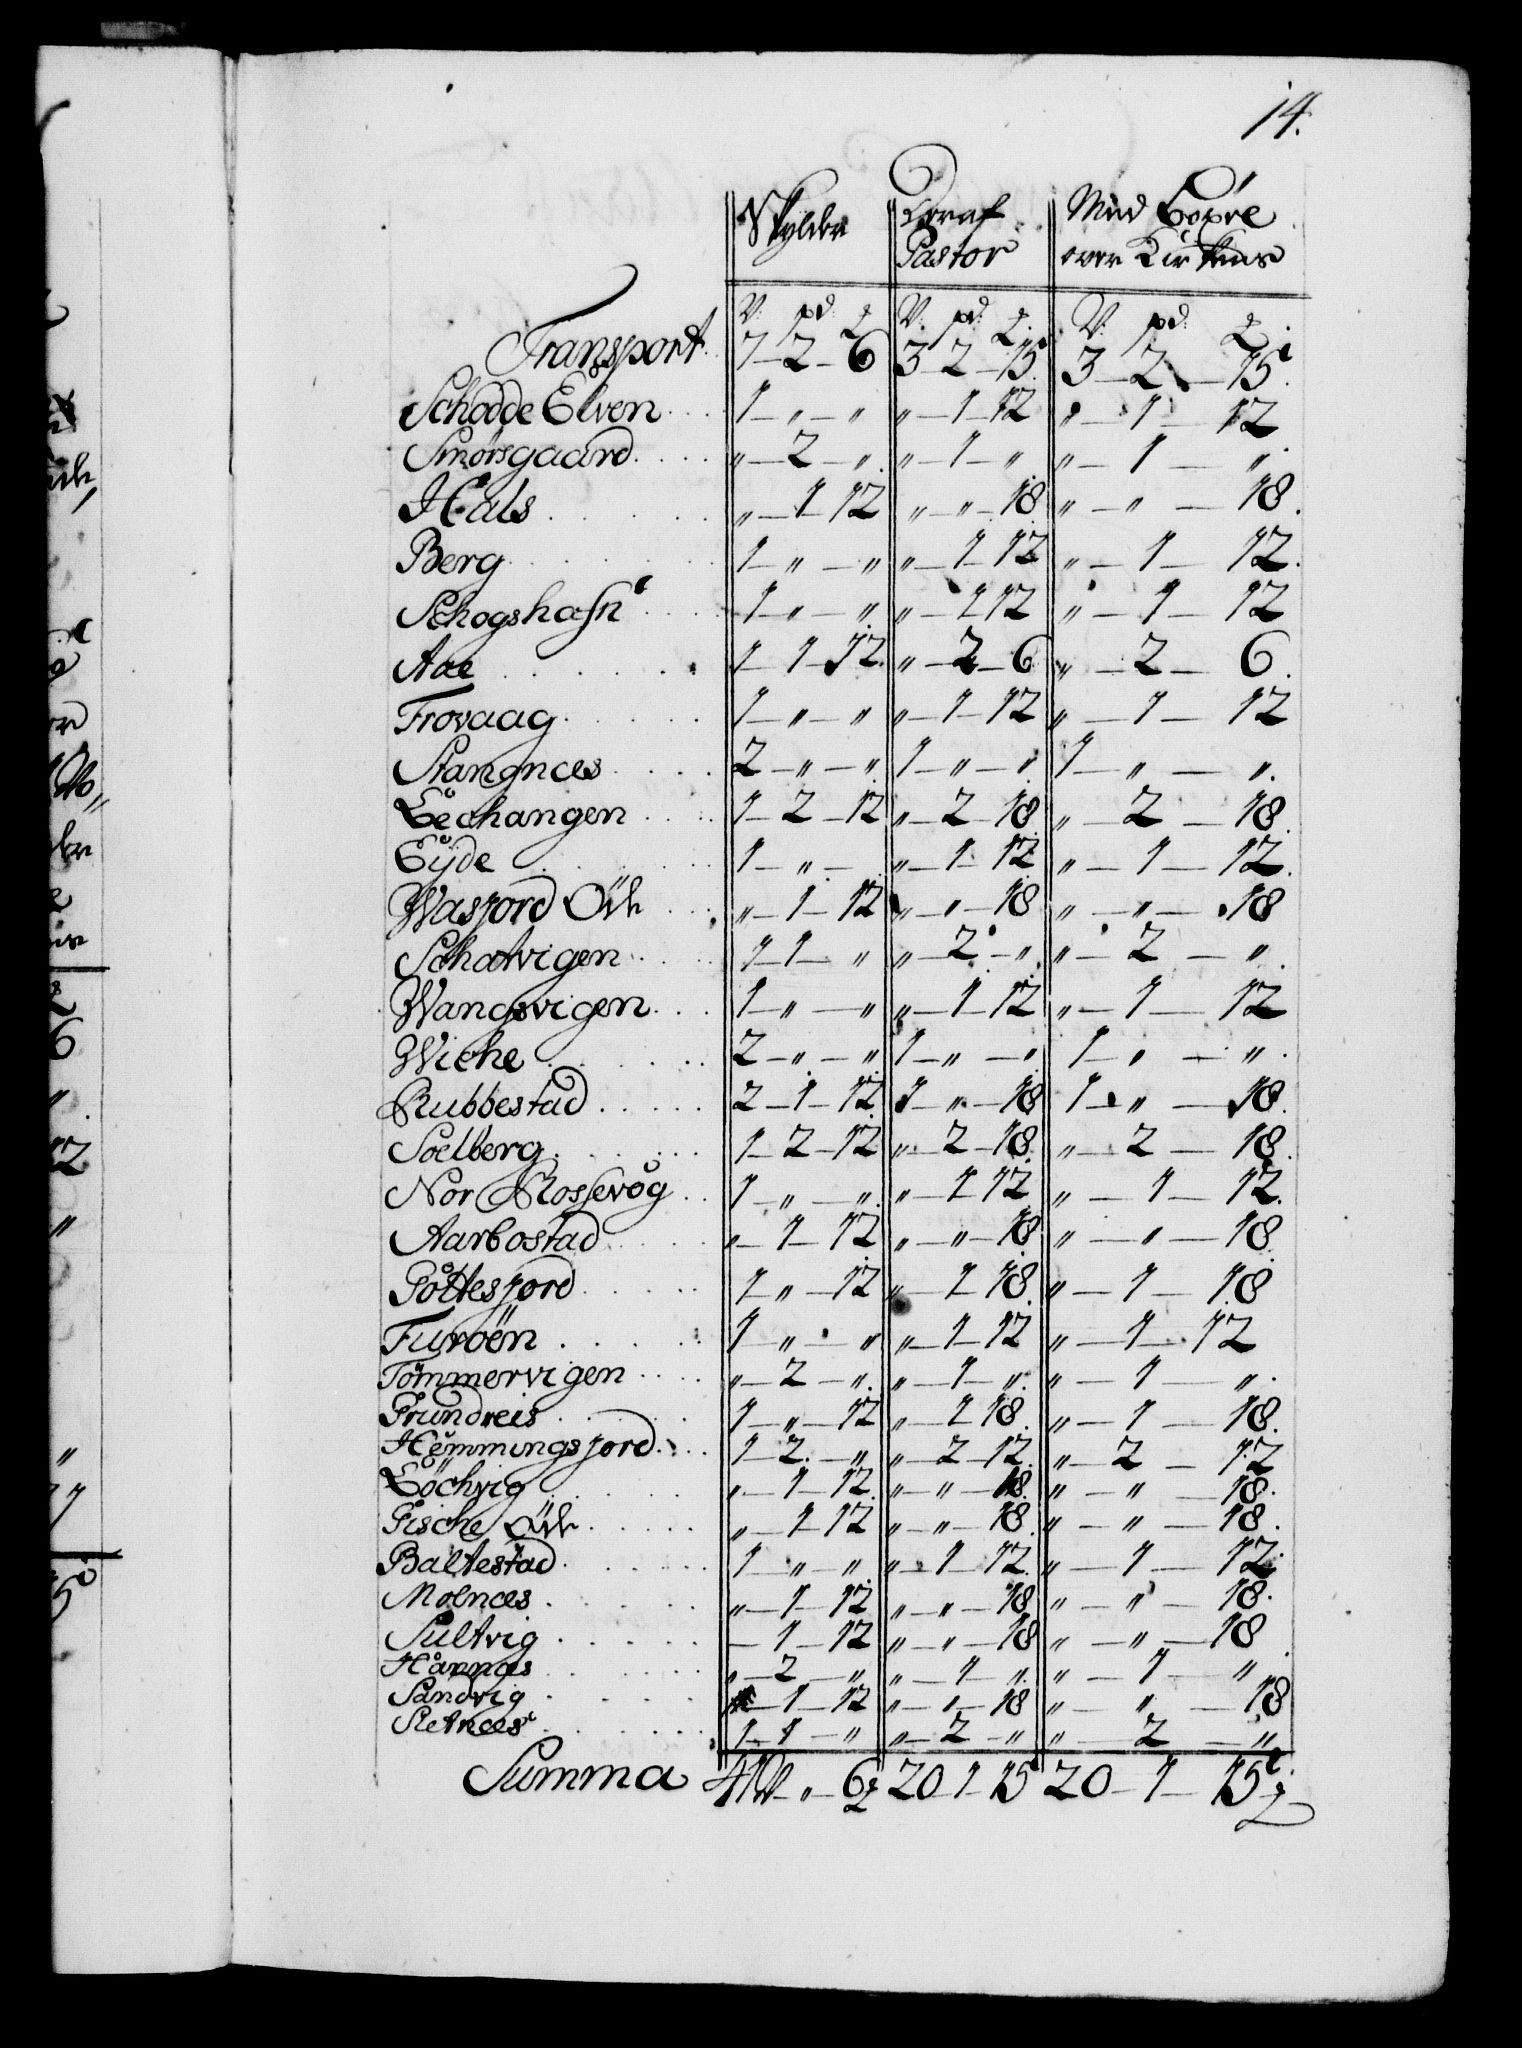 14.
Skylder | Deraf Pastor | Med Boxel over Kirkens
V: pd: | V. pd: | V: pd:
Transport 7 - 2 - 6 | 3 - 2 - 15 | 3 - 2 - 15
Schodde Elven 1 - " - " | " - 1 - 12 | " - 1 - 12
Smörsgaard " - 2 - " | " - 1 - " | " - 1 - "
Hals " - 1 - 12 | " - " - 18 | " - " - 18
Berg 1 - " - " | " - 1 - 12 | " - 1 - 12
Schogshafn 1 - " - " | " - 1 - 12 | " - 1 - 12
Aae 1 - 1 - 12 | " - 2 - 6 | " - 2 - 6
Trovaag 1 - " - " | " - 1 - 12 | " - 1 - 12
Stangnæs 2 - " - " | 1 - " - " | 1 - " - "
Lechangen 1 - 2 - 12 | " - 2 - 18 | " - 2 - 18
Eyde 1 - " - | " - 1 - 12 | " - 1 - 12
Wasjord " - 1 - 12 | " - " - 18 | " - " - 18
Schatvigen 1 - 1 - " | " - 2 - " | " - 2 - "
Wangsvigen 1 - " - " | " - 1 - 12 | " - 1 - 12
Wiche 2 - " - " | 1 - " - " | 1 - " - "
Rubbestad 2 - 1 - 12 | 1 - " - 18 | 1 - " - 18
Soelberg 1 - 2 - 12 | " - 2 - 18 | " - 2 - 18
Nor Rossevog 1 - " - " | " - 1 - 12 | " - 1 - 12
Aarbostad " - 1 - 12 | " - " - 18 | " - " - 18
Pottesjord 1 - " - 12 | " - 1 - 18 | " - 1 - 18
Furöen 1 - " - " | " - 1 - 12 | " - 1 - 12
Tömmervigen " - 2 - " | " - 1 - " | " - 1 - "
Grundreis 1 - " - 12 | " - 1 - 18 | " - 1 - 18
Hemmingsjord 1 - 2 - " | " - 2 - 12 | " - 2 - 12
Löchvig " - 1 - 12 | " - " - 18 | " - " - 18
Fische " - 1 - 12 | " - " - 18 | " - " - 18
Baltestad 1 - " - " | " - 1 - 12 | " - 1 - 12
Moenæs " - 1 - 12 | " - " - 18 | " - " - 18
Sultvig - 1 - 12 | " - " - 18 | " - " - 18
Haannæs " - 2 - " | " - 1 - " | " - 1 - "
Sandvig - 1 - 12 | " - " - 18 | " - " - 18
Sletnæs 1 - 1 - " | " - 2 - " | " - 2 - "
Summa 41 V - " - 6 | 20 - 1 - 15 | 20 - 1 - 15